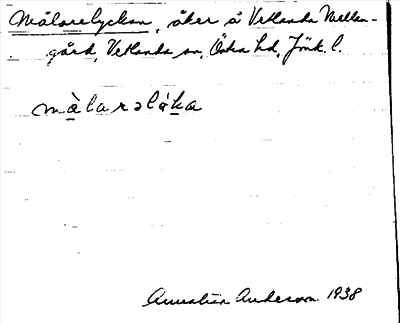 Målarelyckan, åker å Vetlanda Mellan-
gård, Vetlanda sn, Östra hd, Jönk. l.
màlarəlỳka
Anderson 1938